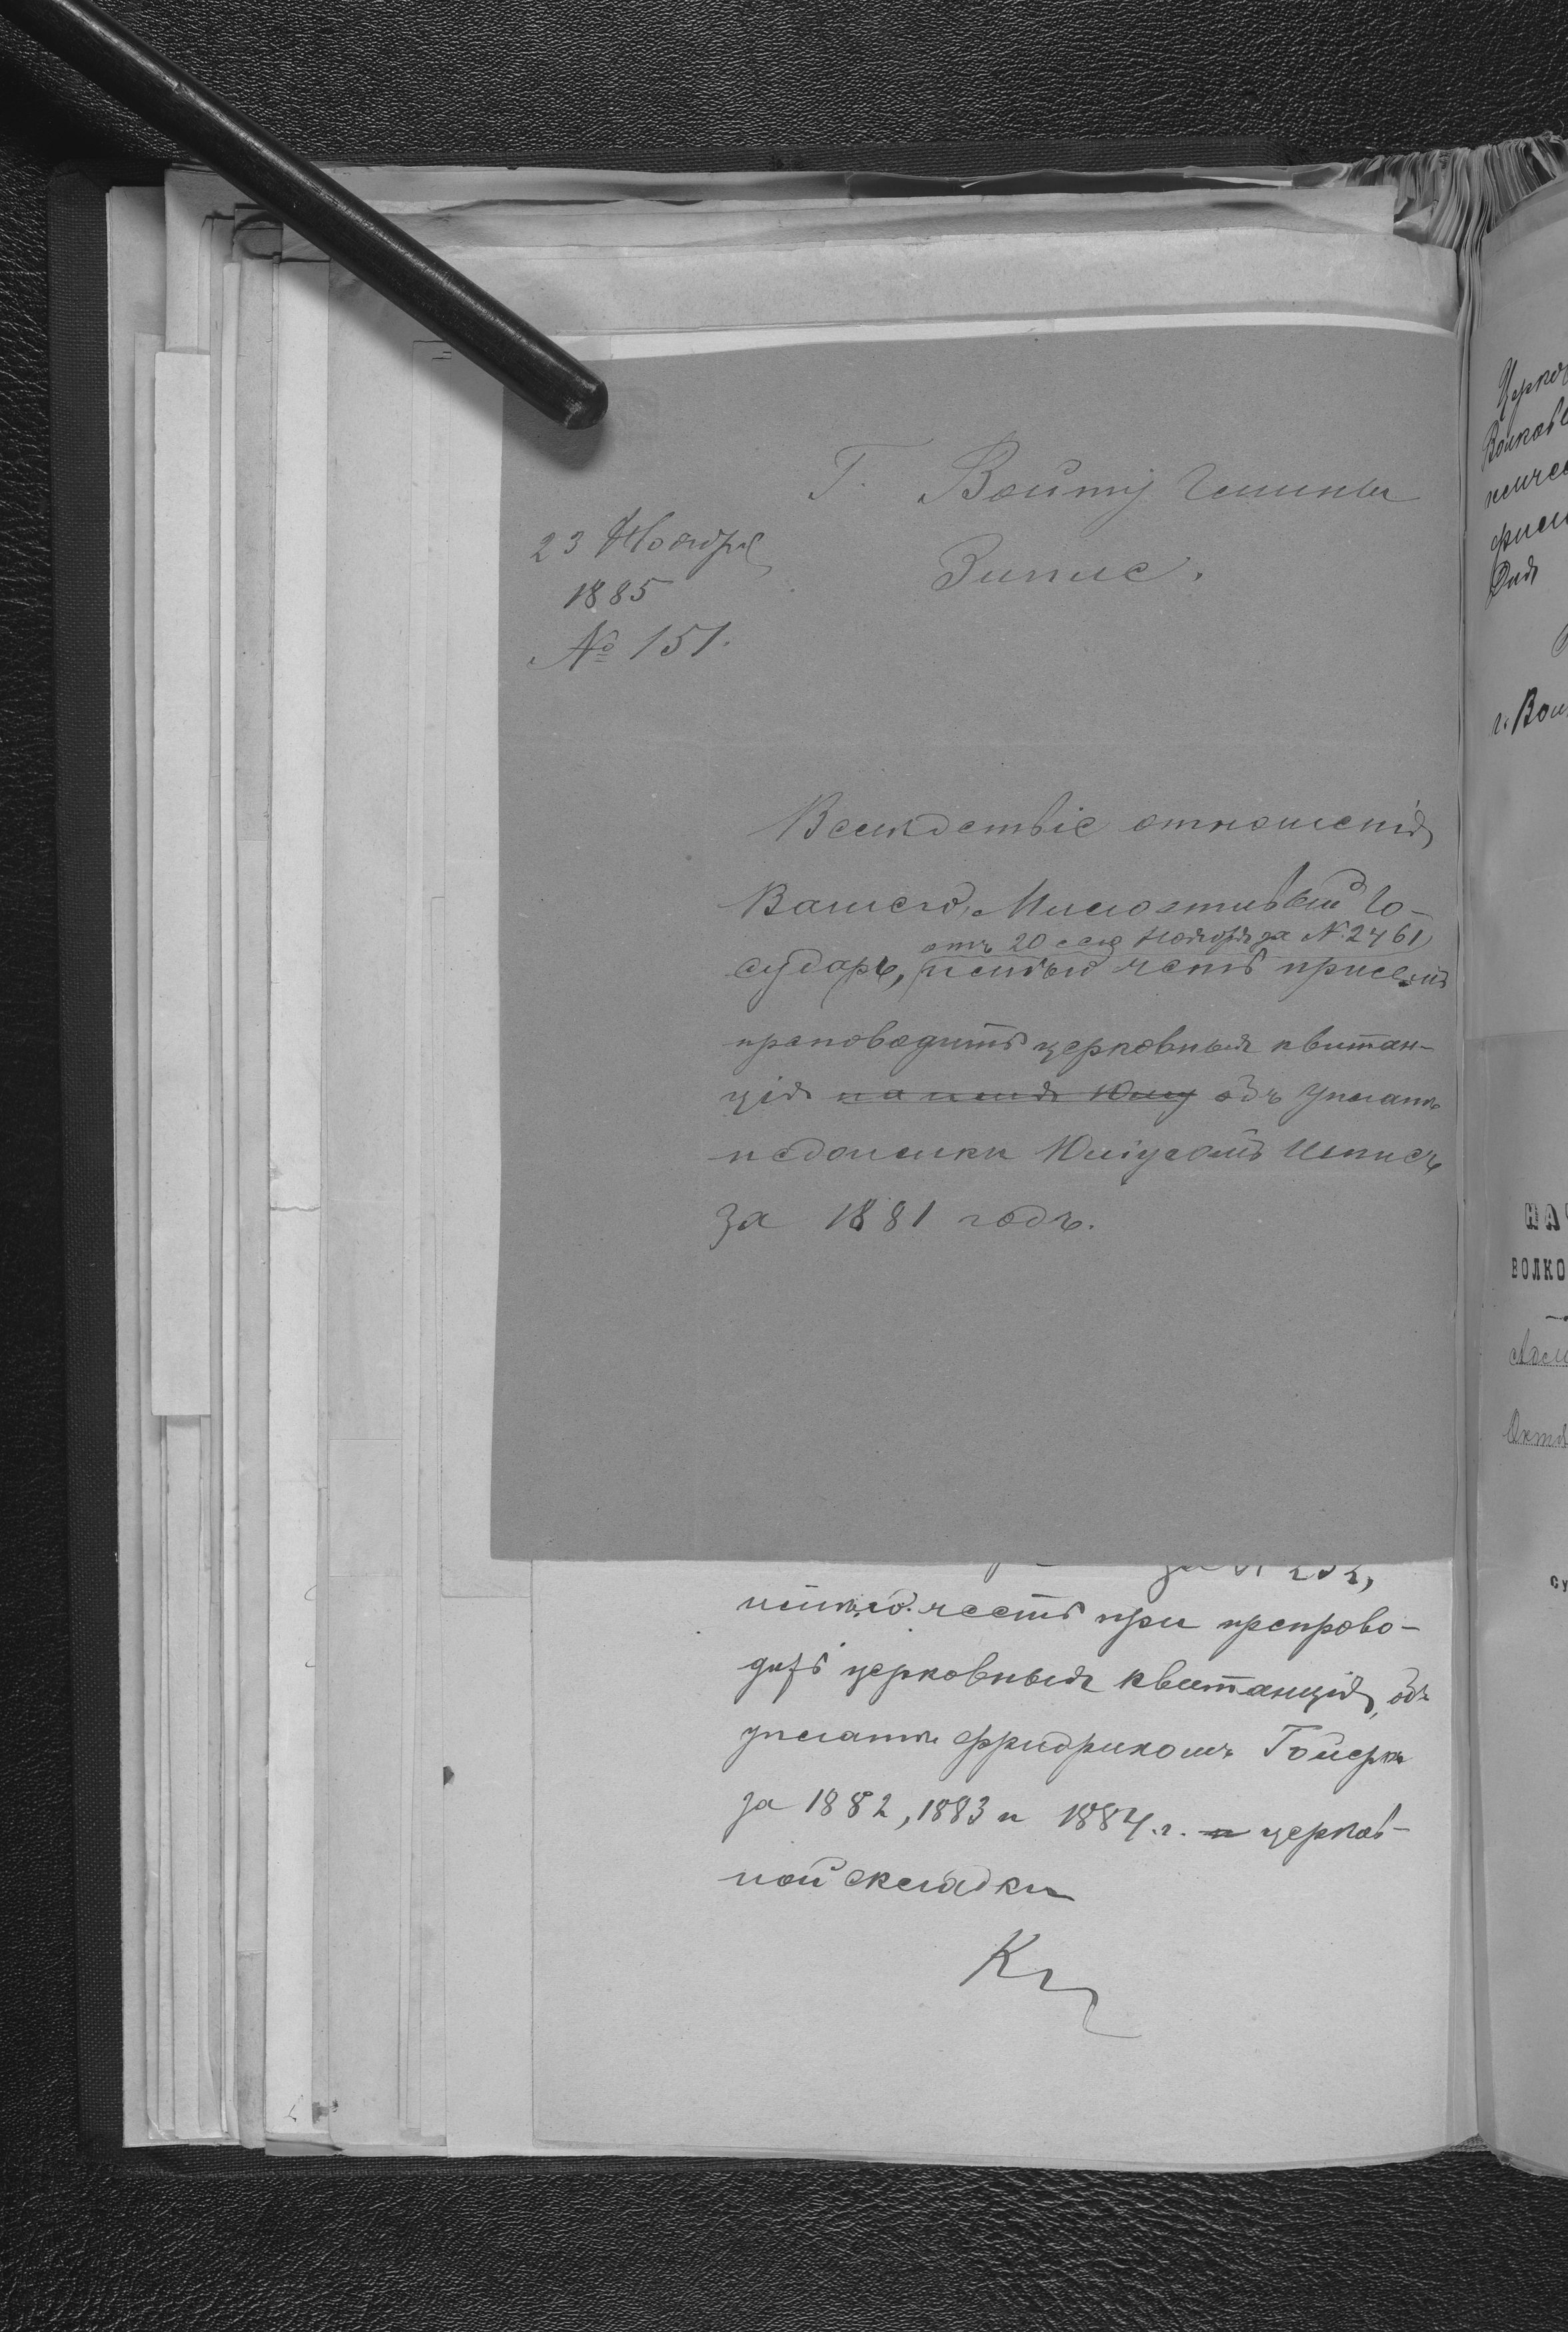 Г. Войту Гмины
Зипле.
23 Ноября
1885
№ 151.
Вслѣдствіе отношенія
Вашего, Милостивый Го-
отъ 20 сего Ноября за № 2461
сударь, имѣю честь при семъ
препроводить церковныя квитан-
ція объ уплатѣ
недоимки Юліусомъ
за 1881 годъ.
252,
имѣю честь при препрово-
дить церковныя квитанція, объ
уплатѣ Фридрихомъ Гойеръ
за 1882, 1883 и 1884 г. церков-
ной складки
НАЧ
ВОЛКО
Октя
г. Вол